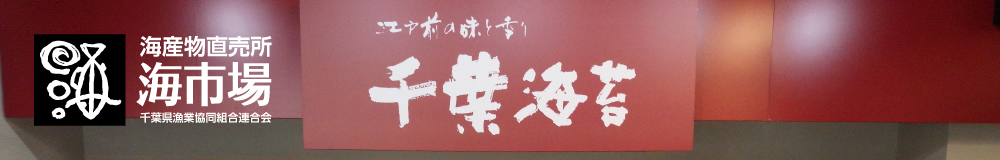 海産物直売所
海市場
千葉県漁業協同組合連合会
江戸前の味と香り
千葉海苔